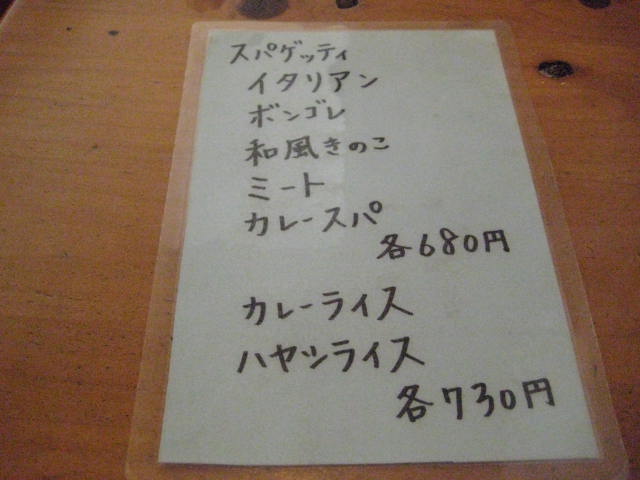 スパゲッティ
イタリアン
ボンゴレ
和風きのこ
ミート
カレースパ
各680円
カレーライス
ハヤシライス
各730円